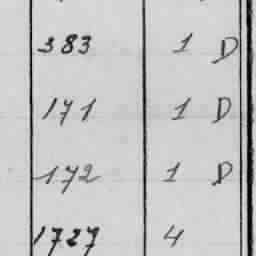 383 1 D
171 1 D
172 1 D
1727 4